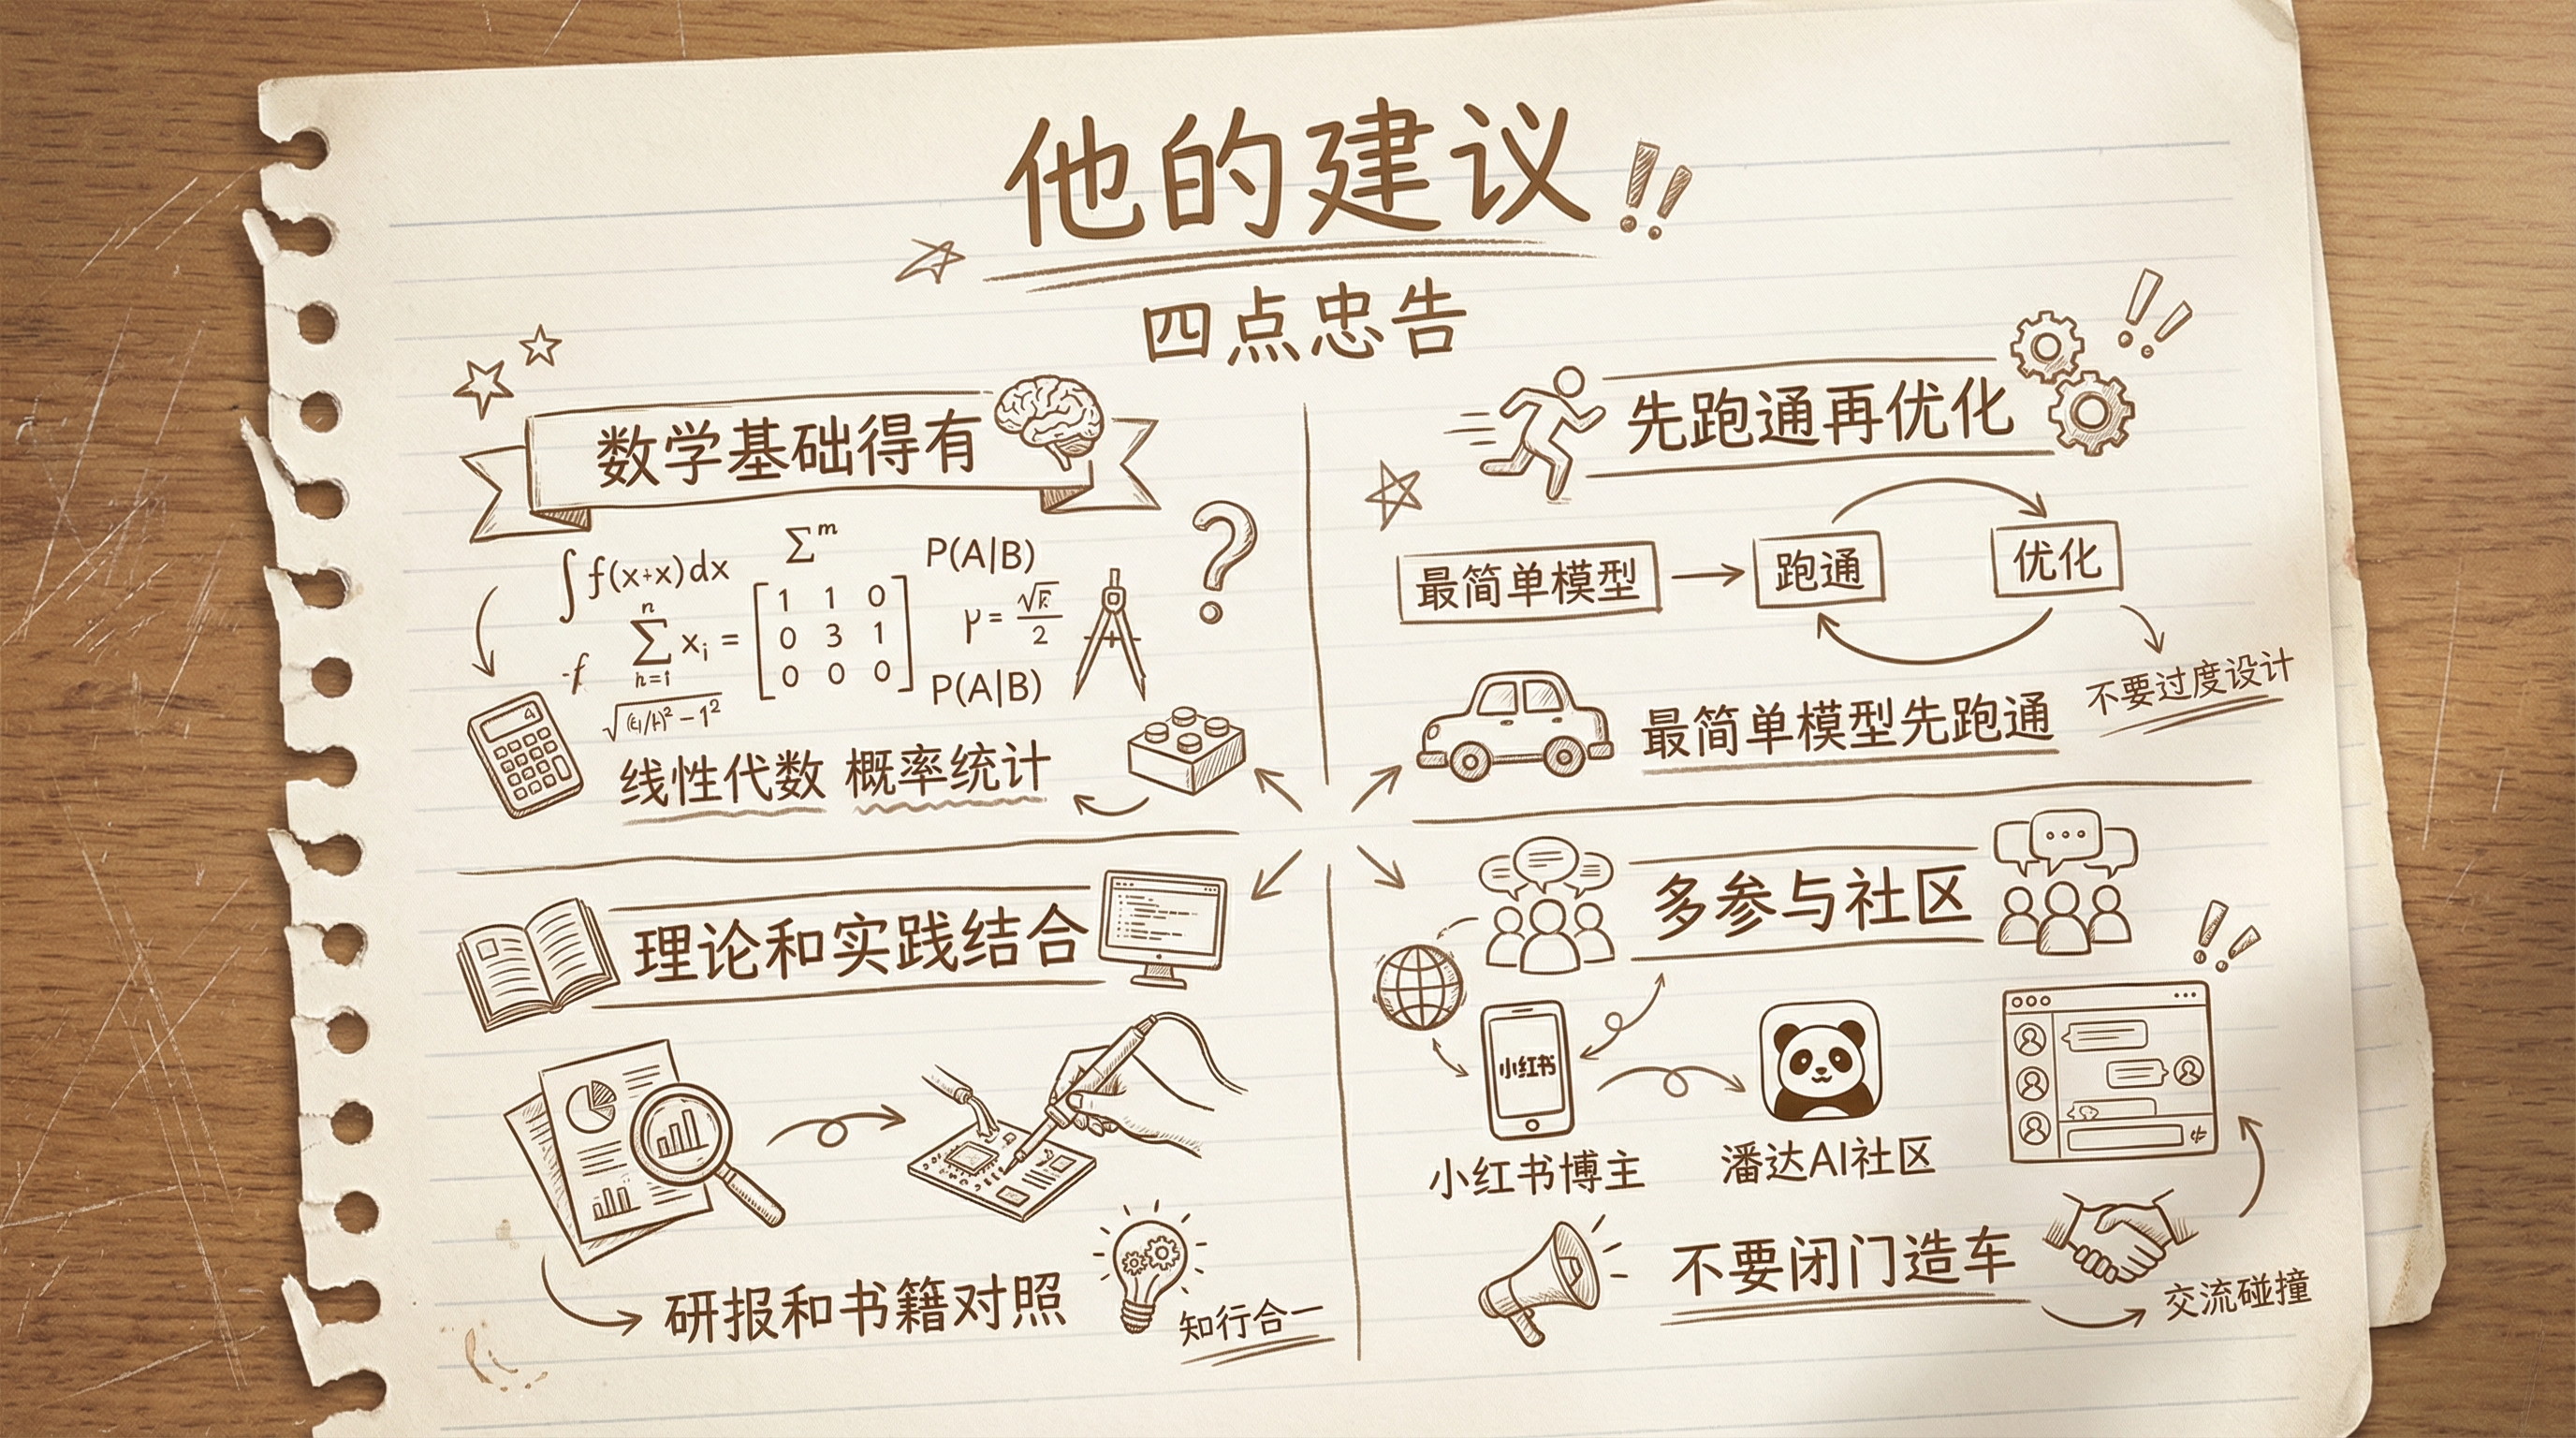 他的建议!!
四点忠告
数学基础得有
∫f(x+x)dx
Σᵐ
P(A|B)
n
Σ xᵢ =
n=1
1 1 0
0 3 1
0 0 0
2
P(A|B)
-f
?
线性代数 概率统计
先跑通再优化
!!
最简单模型
跑通
优化
不要过度设计
最简单模型先跑通
理论和实践结合
研报和书籍对照
知行合一
多参与社区
!!
小红书
小红书博主
潘达AI社区
不要闭门造车
交流碰撞